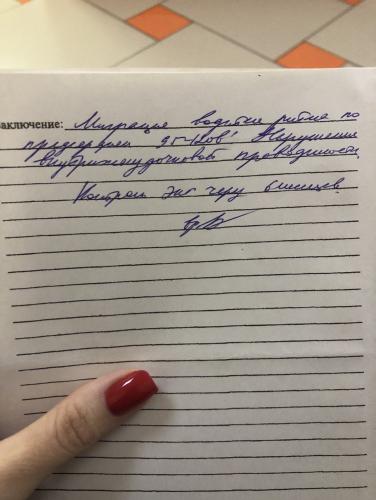 Заключение: Миграция водителя ритма по
предсердиям 95-120в' Нарушение
внутрижелудочковой проводимости
Контроль ЭКГ через 6 месяцев